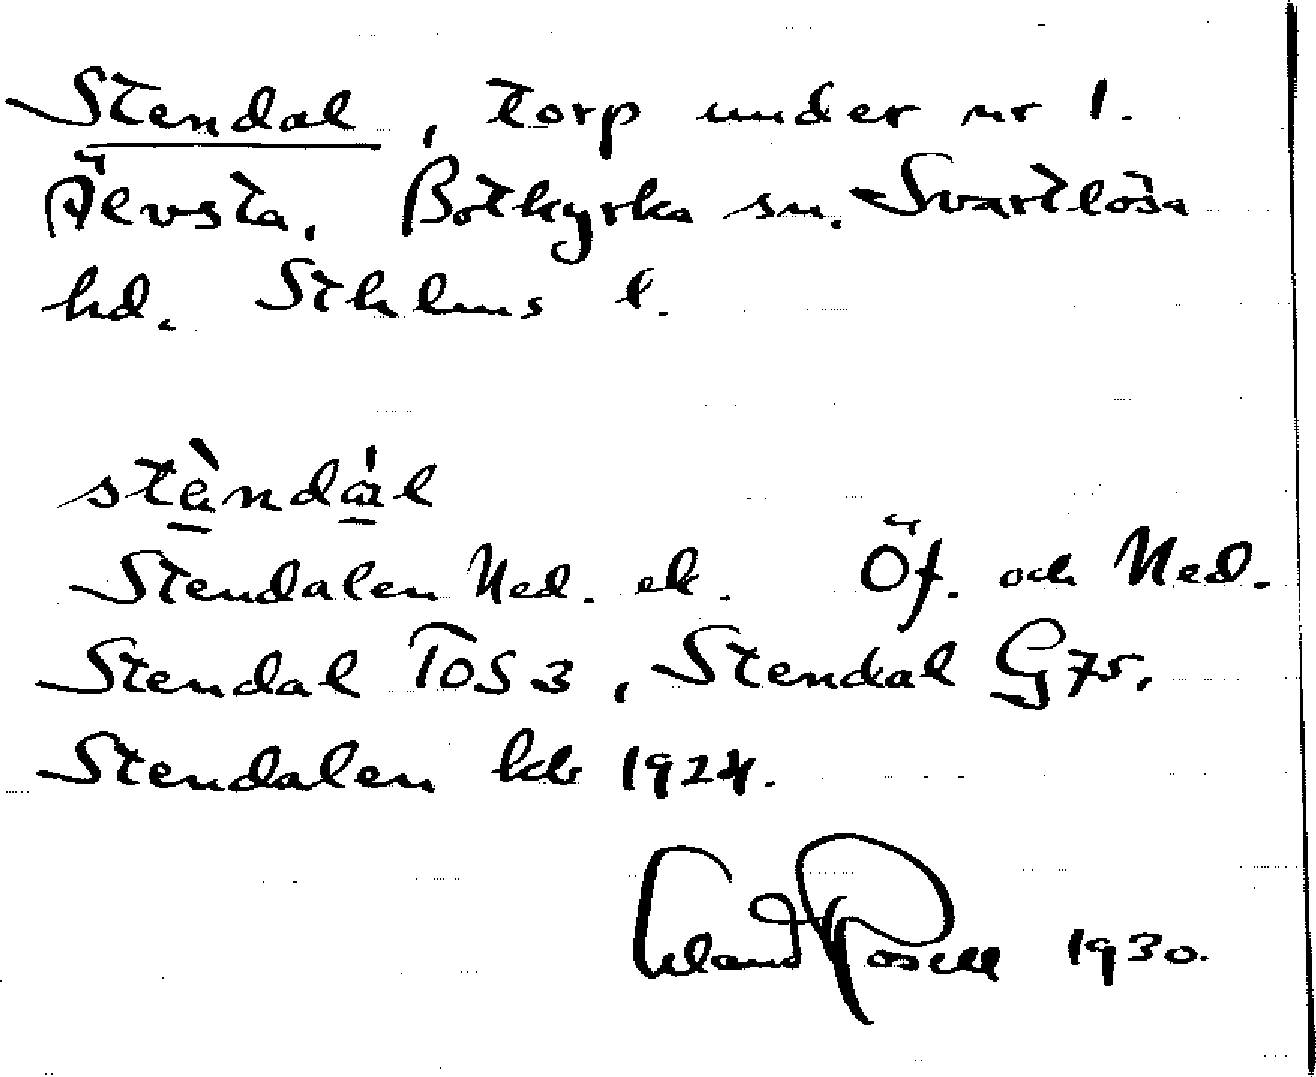 Stendal, torp under nr 1.
Älvsta. Botkyrka sn. Svartlösa
hd. Sthlms l.
stèndál
Stendalen Ned. ek. Öf. och Ned.
Stendal TOS 3, Stendal G75.
Stendalen kb 1924.
Erland Rosell 1930.